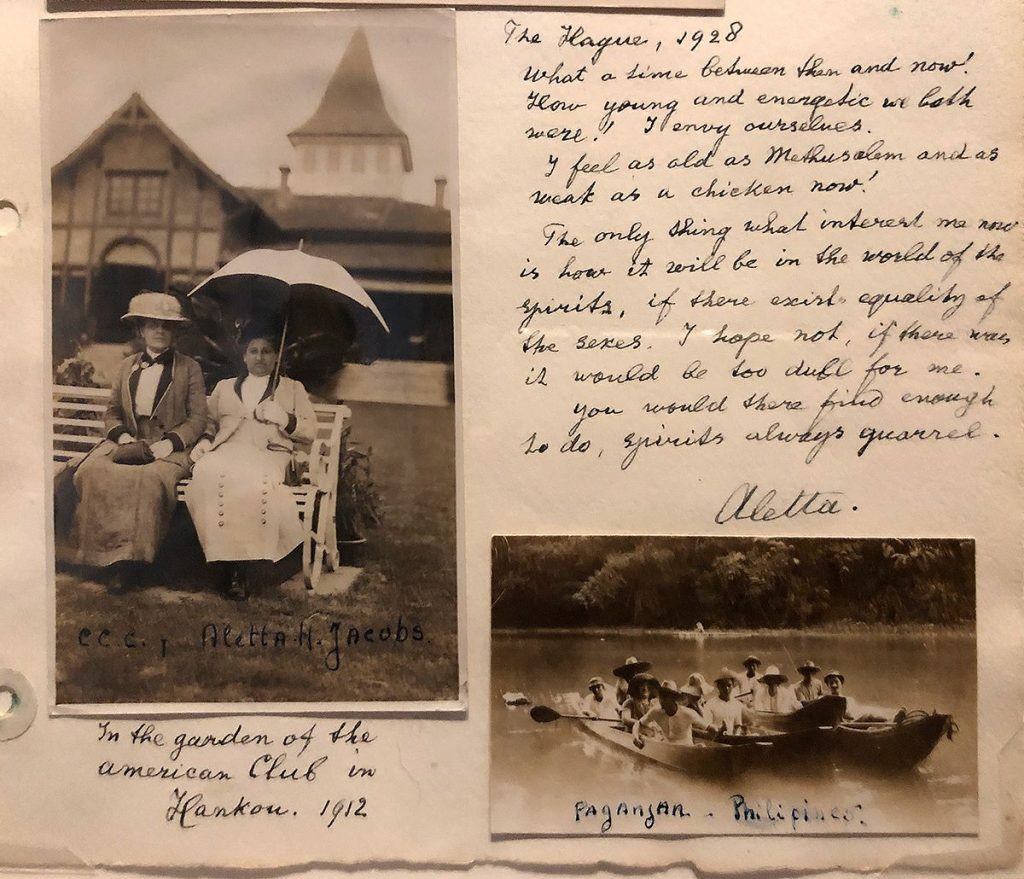 The Hague, 1928
What a time between then and now!
How young and energetic we both
were! I envy ourselves.
I feel as old as Methusalem and as
weak as a chicken now!
The only thing what interest me now
is how it will be in the world of the
spirits, if there exist equality of
the sexes. I hope not, if there was
it would be too dull for me.
You would there find enough
to do, spirits always quarrel.
Aletta.
C.C.C., Aletta H. Jacobs.
In the garden of the
american Club in
Hankou. 1912
PAGANJAN - Philipines.